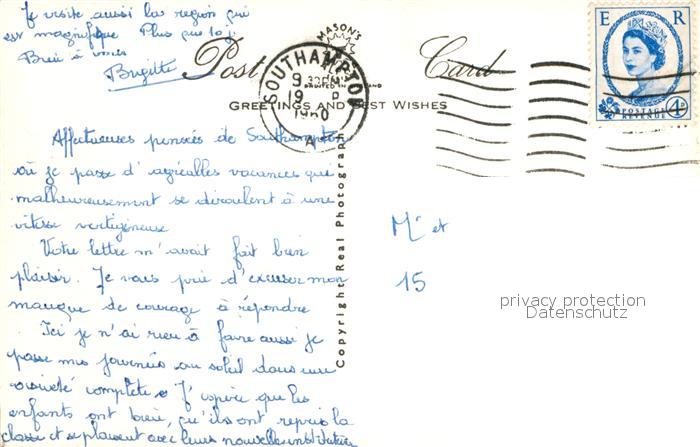 Je visite aussi la region qui
est magnifique Plus que 10 j.
Bien à vous
Brigitte
Post Card
MASON'S
SOUTHAMPTON
9
19
1960
A
GREETINGS AND BEST WISHES
E R
POSTAGE
REVENUE
4D
Affectueuses pensées de Southampton
où je passe d'agréables vacances que
malheureusement se déroulent à une
vitesse vertigineuse
Votre lettre m'avait fait bien
plaisir. Je vous prie d'excuser mon
manque de courage à répondre
Ici je n'ai rien à faire aussi je
passe mes journées au soleil dans une
oisiveté complète. J'espère que les
enfants ont bien, qu'ils ont repris la
classe et se plaisent avec leurs nouvelles
Copyright Real Photograph
Mr et
15
privacy protection
Datenschutz